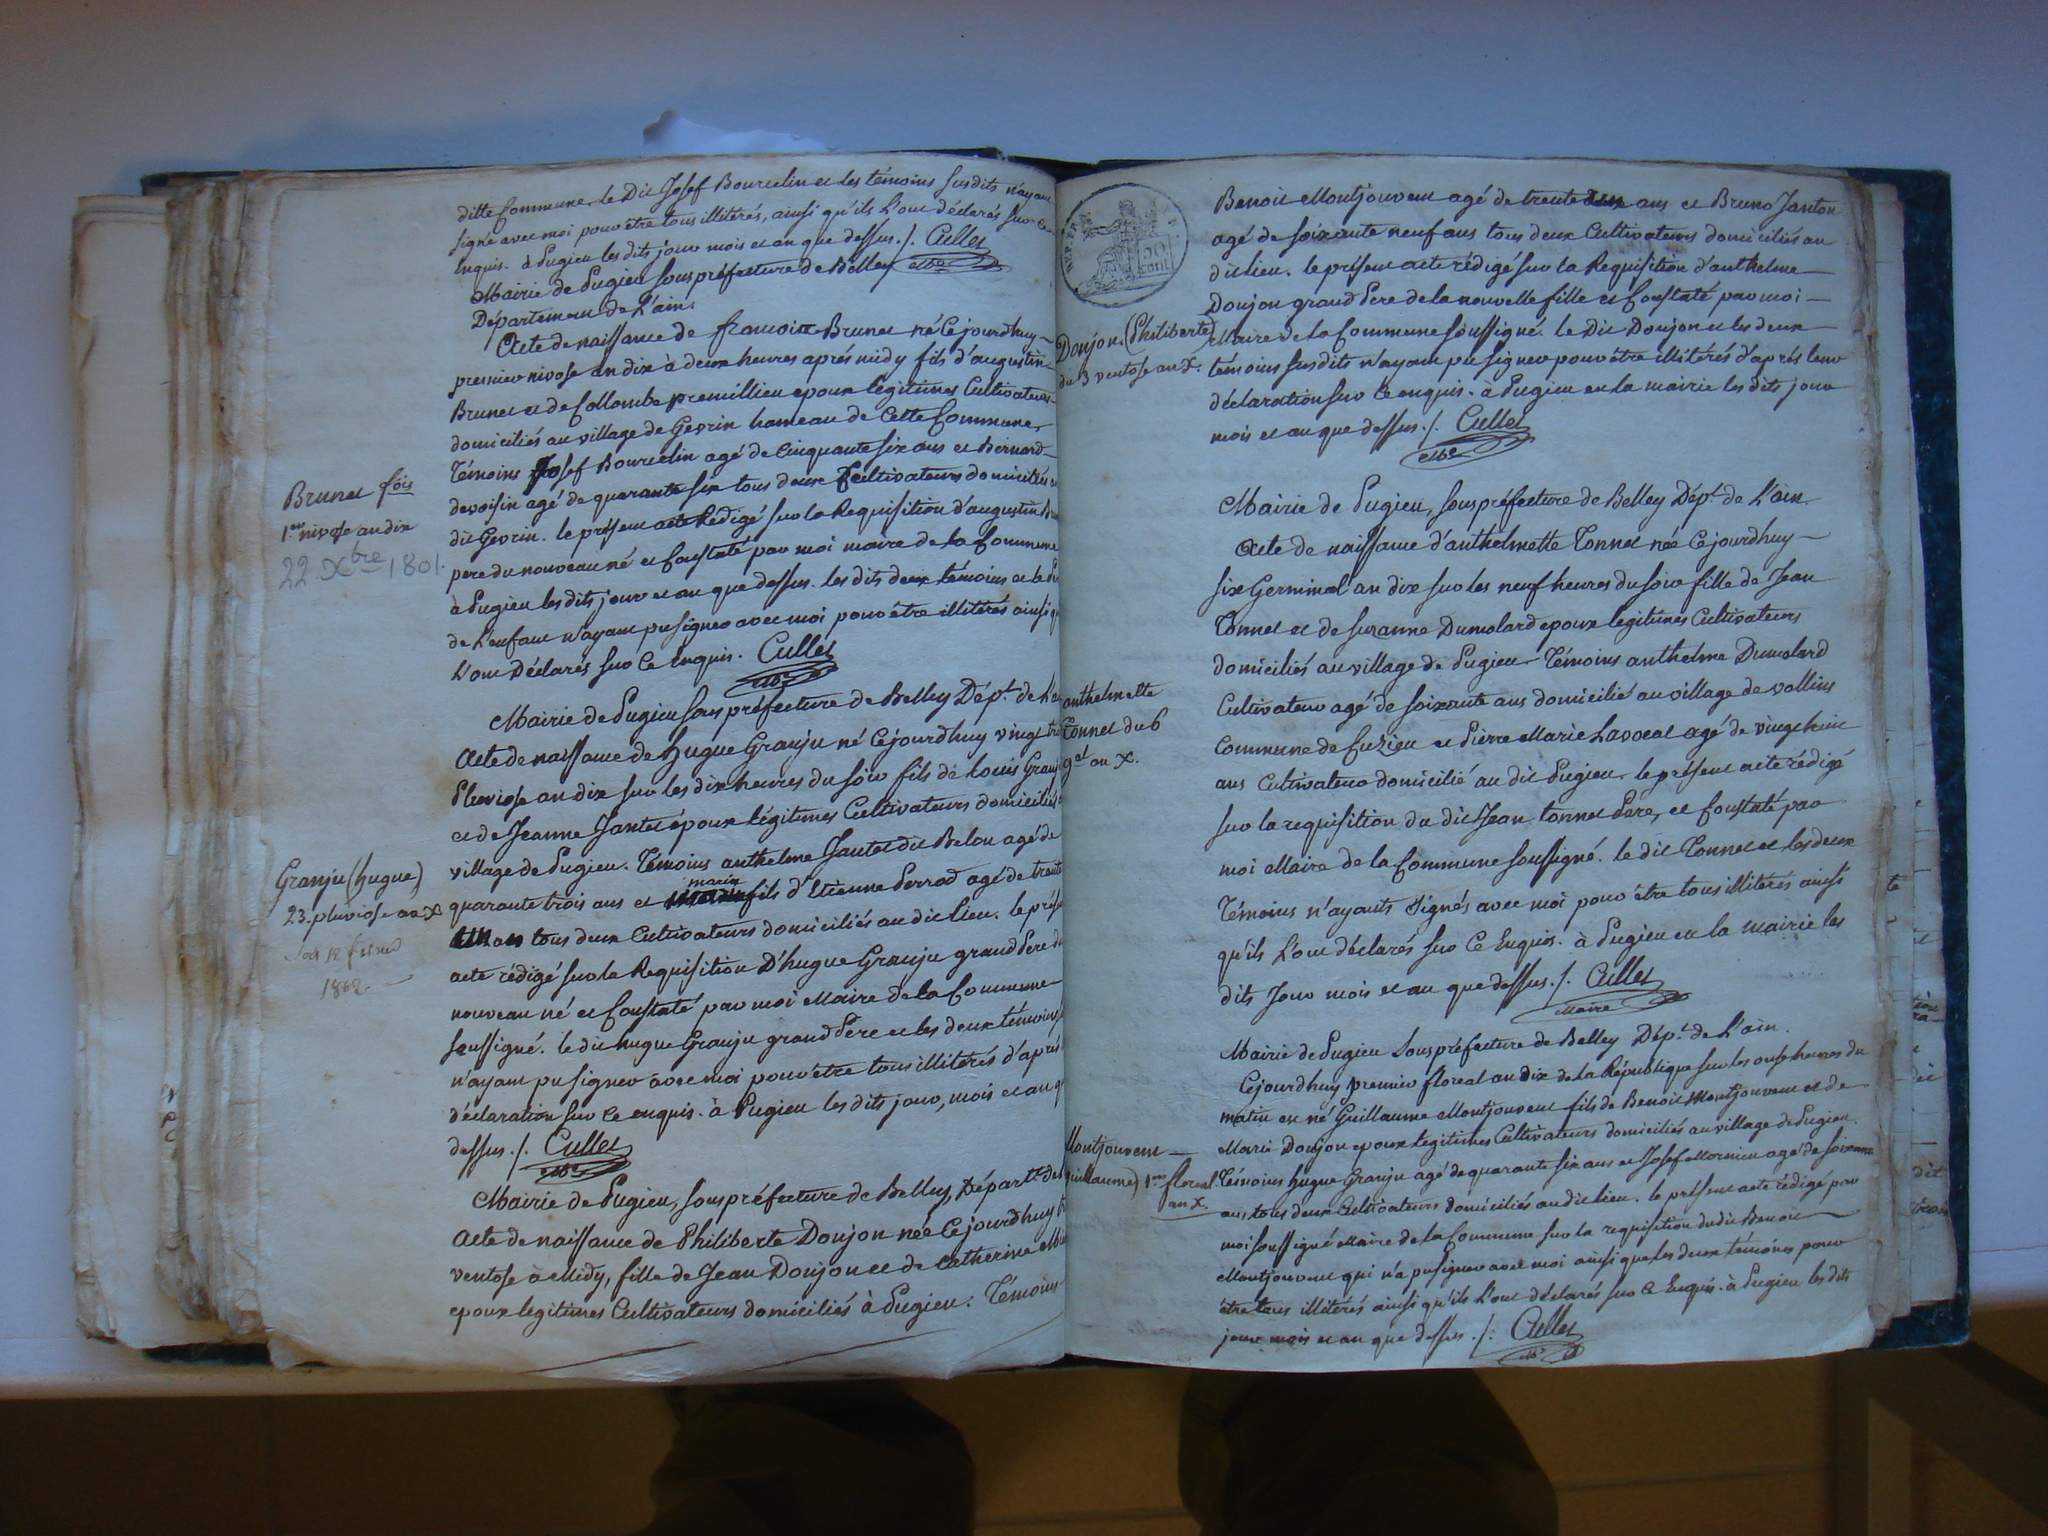 ditte Commune, le Dit Josef Bourcelin et les témoins susdits n'ayant
signé avec moi pour être tous illitérés, ainsi qu'ils l'ont déclarés sur ce
enquis. à Pugieu les dits jour mois et an que dessus ./. Cullet
Mairie de Pugieu sous préfecture de Belley
Département de L'ain.
Acte de naissance de francoise Brunet né Cejourdhuy
premier nivose an dix à deux heures aprés midy fils d'augustin
Brunet et de Collombe premillieu epoux legitimes Cultivateurs
domiciliés au village de Gevrin hameau de Cette Commune,
Témoins Josef Bourcelin agé de Cinquante six ans et Bernard
devoisin agé de quarante six tous deux Cultivateurs domiciliés
dit Gevrin. le présent acte Redigé sur la Requisition d'augustin
pere du nouveau né et Constaté par moi maire de la Commune
à Pugieu les dits jour et an que dessus. les dits deux témoins et le
de L'enfant n'ayant pu signer avec moi pour être illitérés ainsi
L'ont Déclarés sur Ce Enquis. Cullet
Brunet fois
1.er nivose an dix
22 Xbre 1801.
Mairie de Pugieu sous préfecture de Belley Dép.t de L'
Acte de naissance de Hugue Granju né Cejourdhuy vingt
Pluviose an dix sur les dix heures du soir fils de Louis
et de Jeanne Jantet époux légitimes Cultivateurs domiciliés
village de Pugieu. Témoins anthelme Jantet dit Belou agé de
quarante trois ans et marin fils d'Etienne Perrod agé de trente
ans tous deux Cultivateurs domiciliés au dit lieu. le
acte rédigé sur la Requisition D'hugue Granju grand Pere
nouveau né et Constaté par moi Maire de la Commune
soussigné. le dit hugue Granju grand Pere et les deux témoins
n'ayant pu signer avec moi pour être tous illitérés d'aprés
déclaration sur ce enquis. à Pugieu les dits jour, mois et an
dessus ./. Cullet
Granju (hugue)
23. pluviose an X
1802
Mairie de Pugieu, sous préfecture de Belley, Départ.t de
acte de naissance de Philiberte Doujon née Cejourdhuy
ventose à Midy, fille de Jean Doujon et de Catherine
epoux legitimes Cultivateurs domiciliés à Pugieu. Témoins
50
cent
Benoit Montjouvent agé de trente ans et Bruno Janton
agé de soixante neuf ans tous deux Cultivateurs domiciliés au
dit lieu. le présent acte rédigé sur la Requisition d'anthelme
Doujon grand Pere de la nouvelle fille et Constaté par moi
Maire de la Commune soussigné. le Dit Doujon et les deux
témoins susdits n'ayant pu signer pour être illitérés d'aprés leur
déclaration sur Ce enquis. à Pugieu en la mairie les dits jour
mois et an que dessus ./. Cullet
Doujon (Philiberte)
du 3 ventose an X.
Mairie de Pugieu, sous préfecture de Belley Dép.t de L'ain.
Acte de naissance d'anthelmette Tonnet née Cejourdhuy
six Germinal an dix sur les neuf heures du soir fille de Jean
Tonnet et de suzanne Dumolard epoux legitimes Cultivateurs
domiciliés au village de Pugieu. Témoins anthelme Dumolard
Cultivateur agé de soixante ans domicilié au village de vollins
Commune de Cuzieu et Pierre Marie Lavocat agé de vingt huit
ans Cultivateur domicilié au dit Pugieu. le présent acte rédigé
sur la requisition du dit Jean tonnet Pere, et Constaté par
moi Maire de la Commune soussigné. le dit Tonnet et les deux
Témoins n'ayants signés avec moi pour être tous illitérés ainsi
qu'ils L'ont déclarés sur Ce Enquis. à Pugieu en la mairie les
dits Jour mois et an que dessus ./. Cullet
Maire
anthelmette
Tonnet du 6
g.al an X.
Mairie de Pugieu sous préfecture de Belley Dép.t de L'ain.
Cejourdhuy premier floreal an dix de la République sur les onze heures du
matin est né Guillaume Montjouvent fils de Benoit Montjouvent et de
Marie Doujon epoux legitimes Cultivateurs domiciliés au village de Pugieu.
Témoins hugue Granju agé de quarante six ans et Josef Mornieu agé de soixante
ans tous deux Cultivateurs domiciliés au dit lieu. le présent acte rédigé par
moi soussigné Maire de la Commune sur la requisition du dit Benoit
Montjouvent qui n'a pu signer avec moi ainsi que les deux témoins pour
être tous illitérés ainsi qu'ils L'ont déclarés sur Ce Enquis. à Pugieu les dits
jour mois et an que dessus ./. Cullet
Montjouvent
guillaume) 1.er floreal
an X.